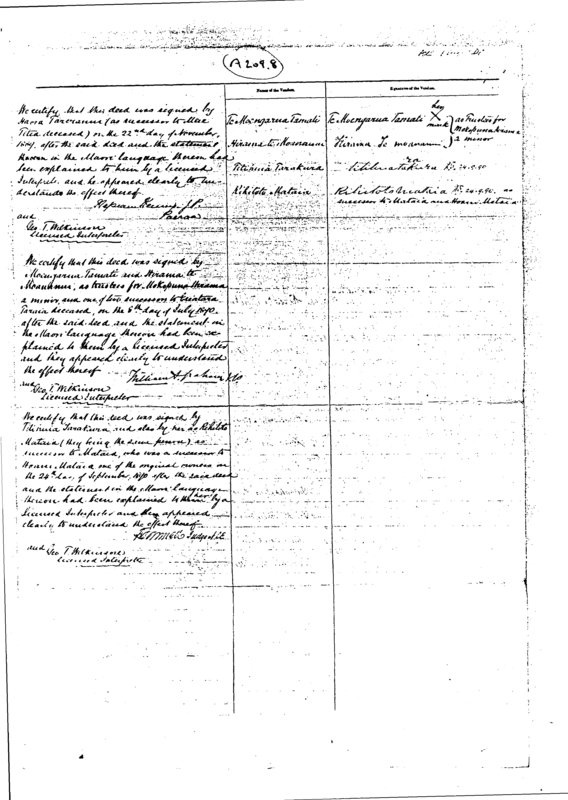 A 209.8
Names of the Vendors.
Signatures of the Vendors.
We certify that this deed was signed by
(as successor to
deceased) on the 22nd day of November,
after the said deed and the statement
in the Maori language thereon had
been explained to him by a Licensed
Interpreter and he appeared clearly to un-
derstand the effect thereof
J.P.
Paeroa
and
Geo. T. Wilkinson
Licensed Interpreter
Te Moengarua Tamati
Te Moengarua Tamati
her
X
mark
as Trustees for
a minor
Hirama te Moananui
Hirama Te Moananui
Titihuia Tarakura
24.9.90
Rihitoto Mataia
Rihitoto Mataia
24.9.90. as
successor to Mataia and Hoani Mataia
We certify that this deed was signed by
Moengarua Tamati and Hirama te
Moananui, as trustees for Mokopuna Hirama
a minor, and one of two successors to
Taraia deceased, on the 8th day of July 1890,
after the said deed and the statement in
the Maori language thereon had been ex-
plained to them by a Licensed Interpreter
and they appeared clearly to understand
the effect thereof
William A. Graham J.P.
and
Geo. T. Wilkinson
Licensed Interpreter
We certify that this deed was signed by
Titihuia Tarakura and also by her as Rihitoto
Mataia (they being the same person) as
successor to Mataia, who was a successor to
Hoani Mataia one of the original owners on
the 24th day of September, 1890 after the said deed
and the statement in the Maori language
thereon had been explained to her by a
Licensed Interpreter and she appeared
clearly to understand the effect thereof
and
Geo. T. Wilkinson
Licensed Interpreter